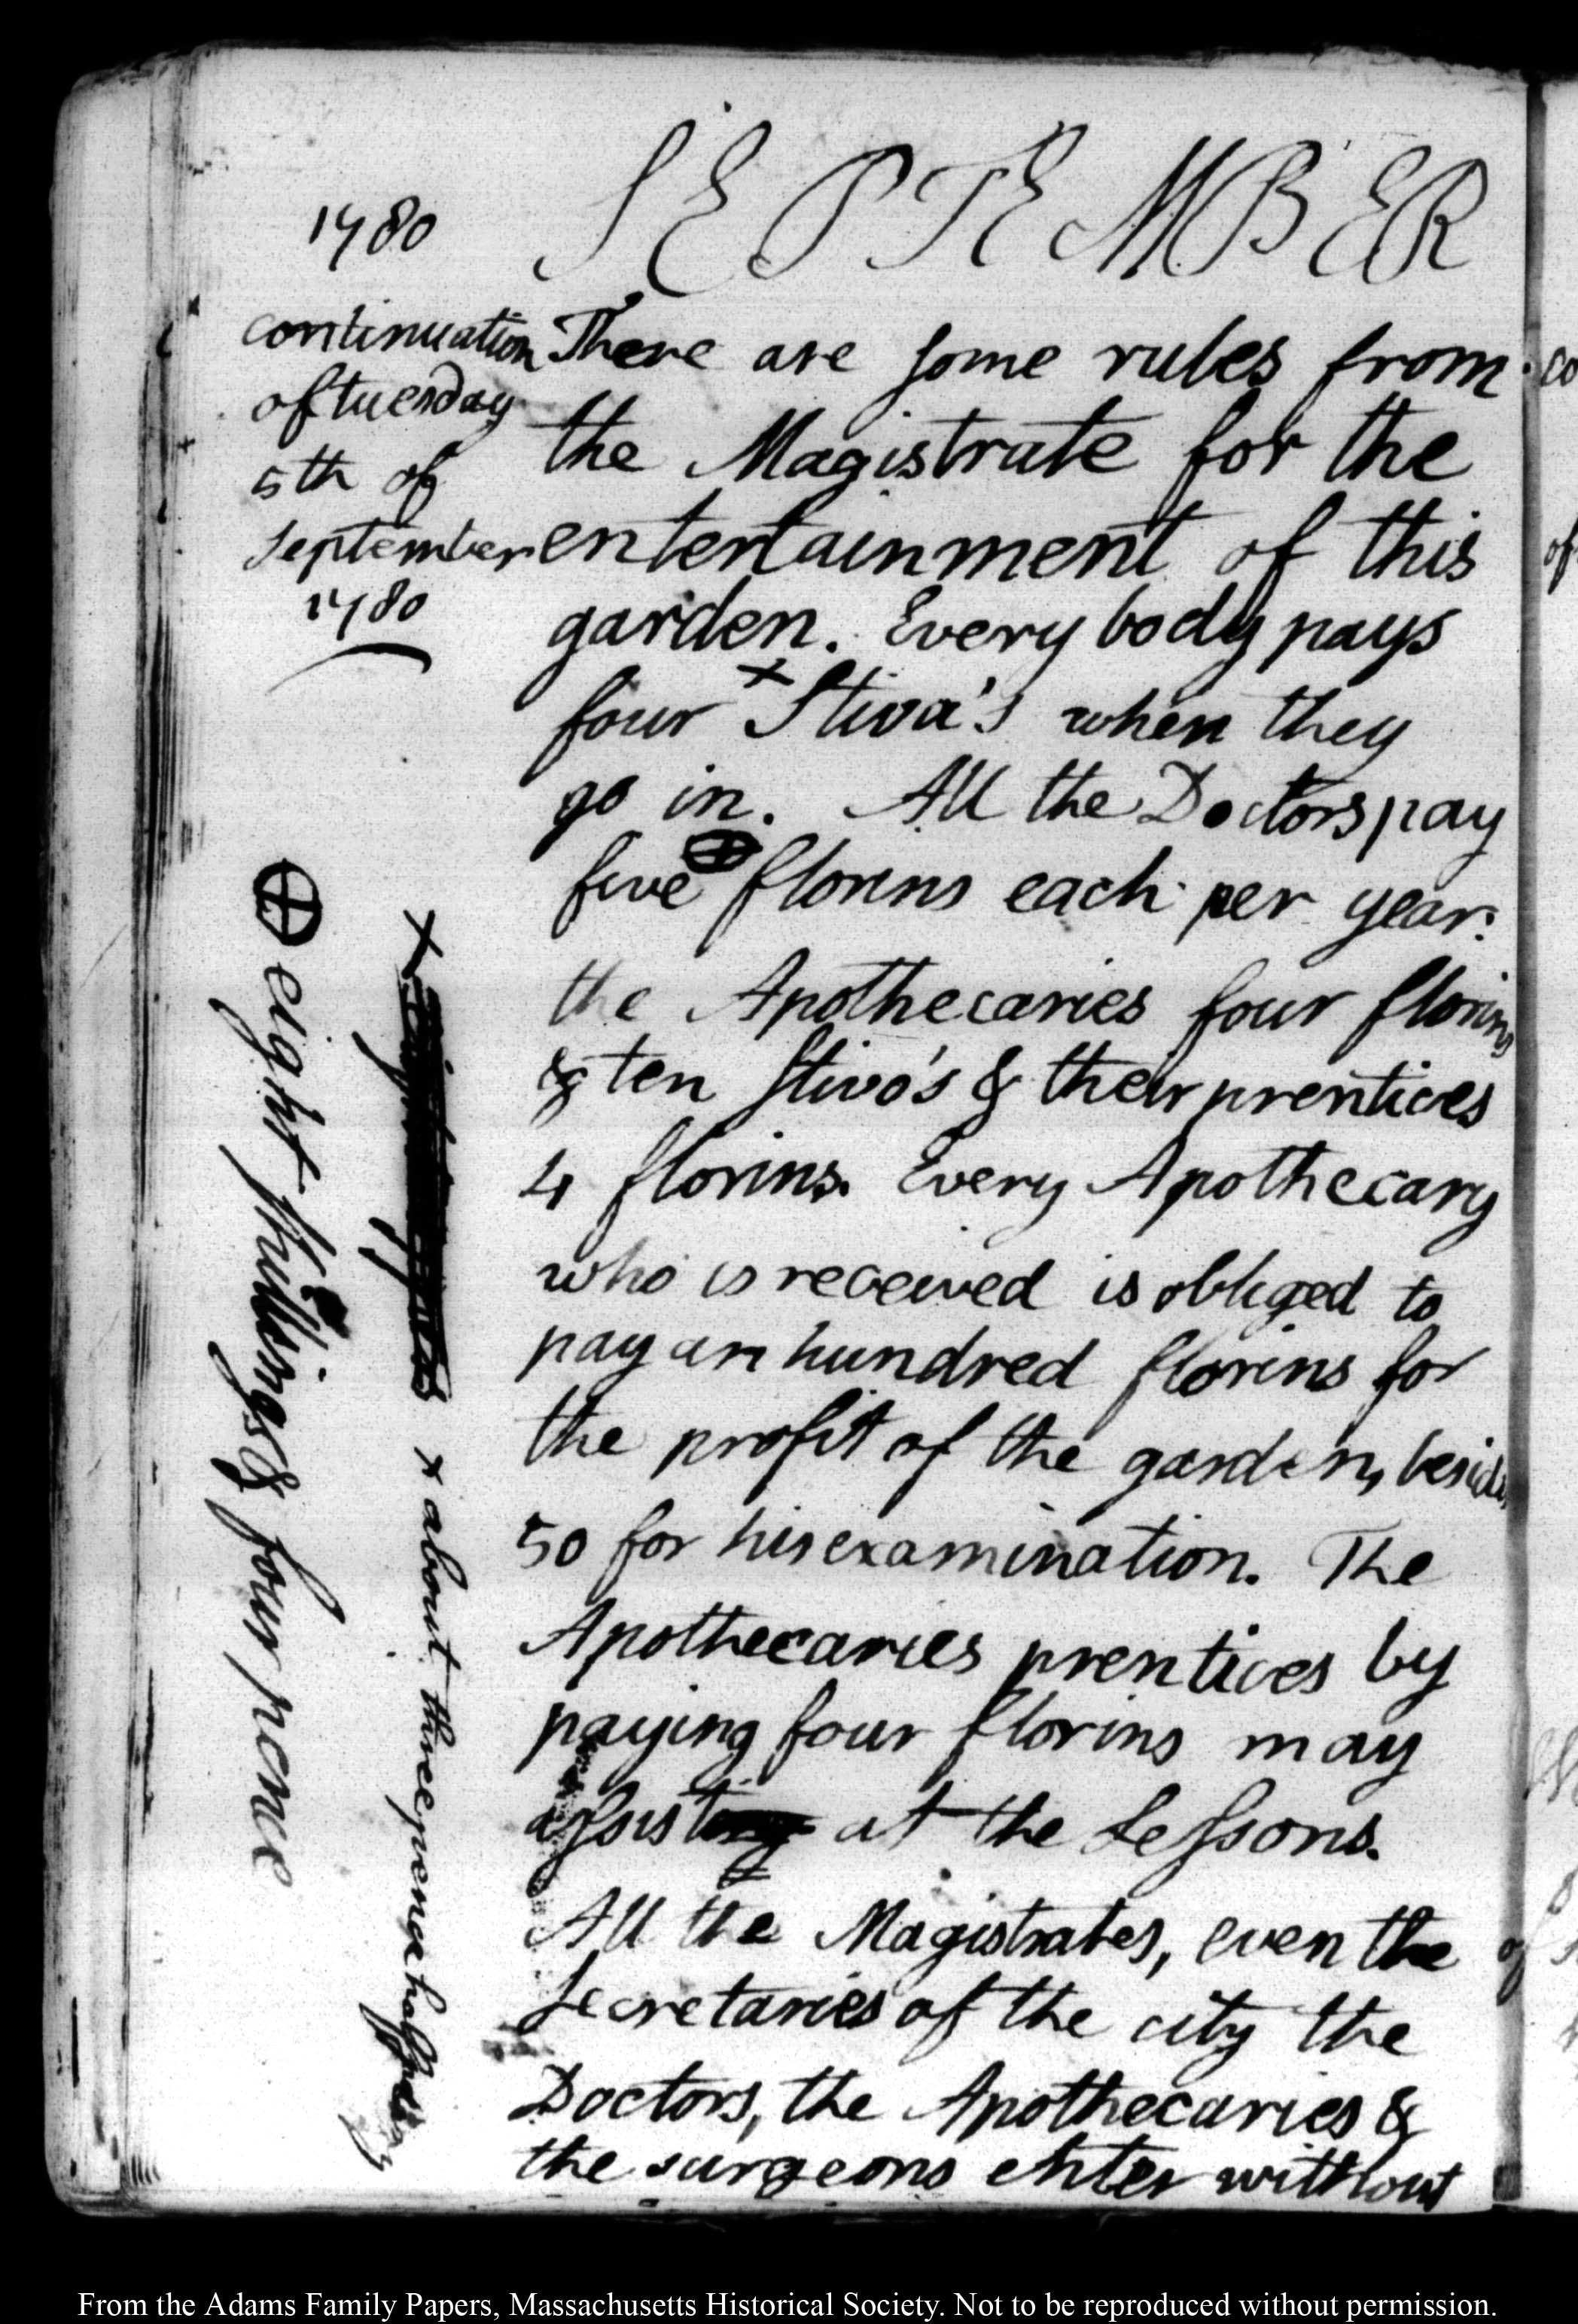 SEPTEMBER
1780
continuation
of tuesday
5th of
September
1780
There are some rules from
the Magistrate for the
entertainment of this
garden. Every body pays
four x Stiva's when they
go in. All the Doctors pay
five ⊕ florins each per year:
the Apothecaries four florins
& ten Stivo's & their prentices
4 florins. Every Apothecary
who is received is obliged to
pay an hundred florins for
the profit of the garden, besides
50 for his examination. The
Apothecaries prentices by
paying four florins may
assist at the Lessons.
All the Magistrates, even the
Secretaries of the city the
Doctors, the Apothecaries &
the surgeons enter without
x
x about three pence halfpenny
⊕ eight shillings & four pence
co
of
of
From the Adams Family Papers, Massachusetts Historical Society. Not to be reproduced without permission.